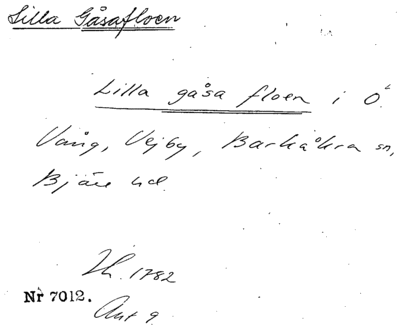 Lilla Gåsafloen
Lilla gåsa floen i Ö
Vång, Vejby, Barkåkra sn,
Bjäre hd.
1782
Nr 7012.
Akt 9.